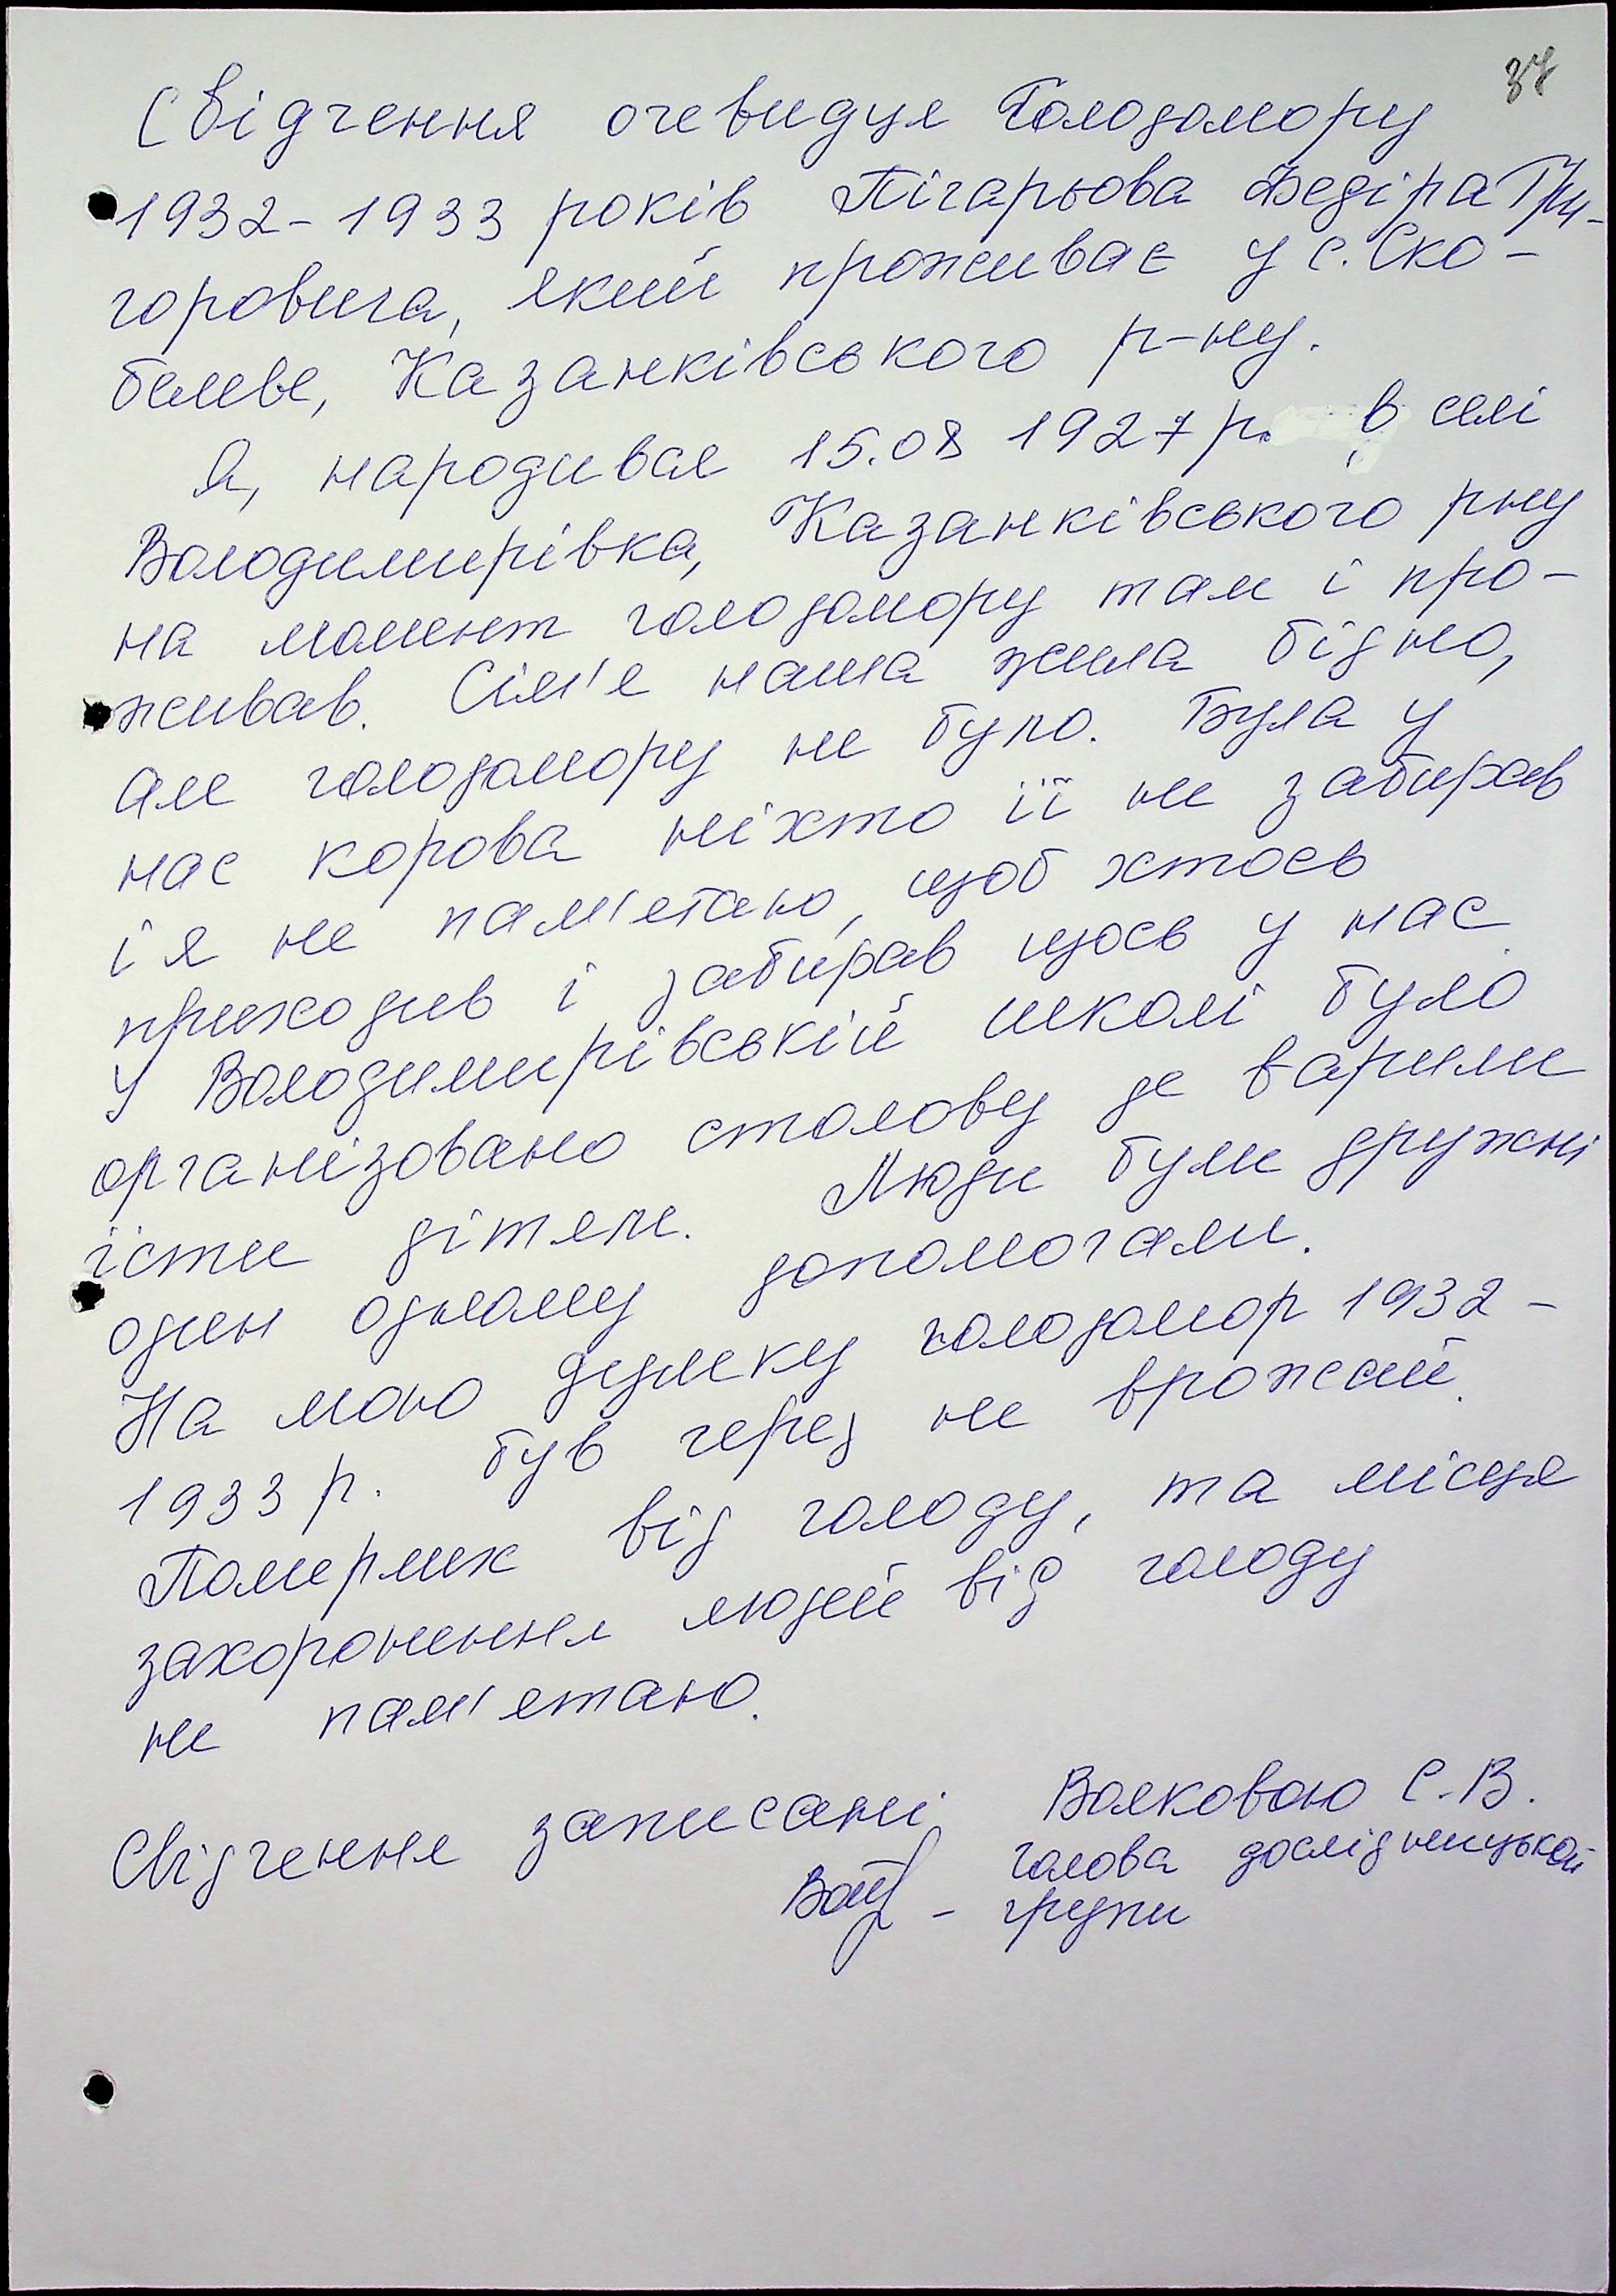 37
Свідчення очевидця Голодомору
1932-1933 років Пігарьова Федіра Гри-
горовича, який проживає у с. Ско-
белеве, Казанківського р-ну.
Я, народився 15.08 1927 р. в селі
Володимирівка, Казанківського рну
на момент голодомору там і про-
живав. Сім'я наша жила бідно,
але голодомору не було. Була у
нас корова ніхто її не забирав
і я не пам'ятаю, щоб хтось
приходив і забирав щось у нас.
У Володимирівській школі було
організовано столову де варили
їсти дітям. Люди були дружні
один одному допомогали.
На мою думку голодомор 1932-
1933 р. був через не врожай.
Померлих від голоду, та місця
захоронення людей від голоду
не пам'ятаю.
Свідчення записані Волковою С.В.
голова дослідницької
- групи